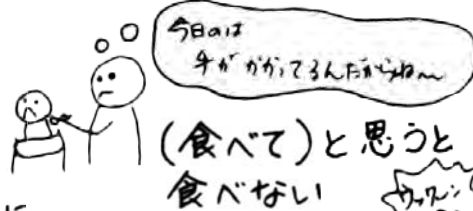 今日のは
手がかかってるんだからね〜
(食べて)と思うと
食べない